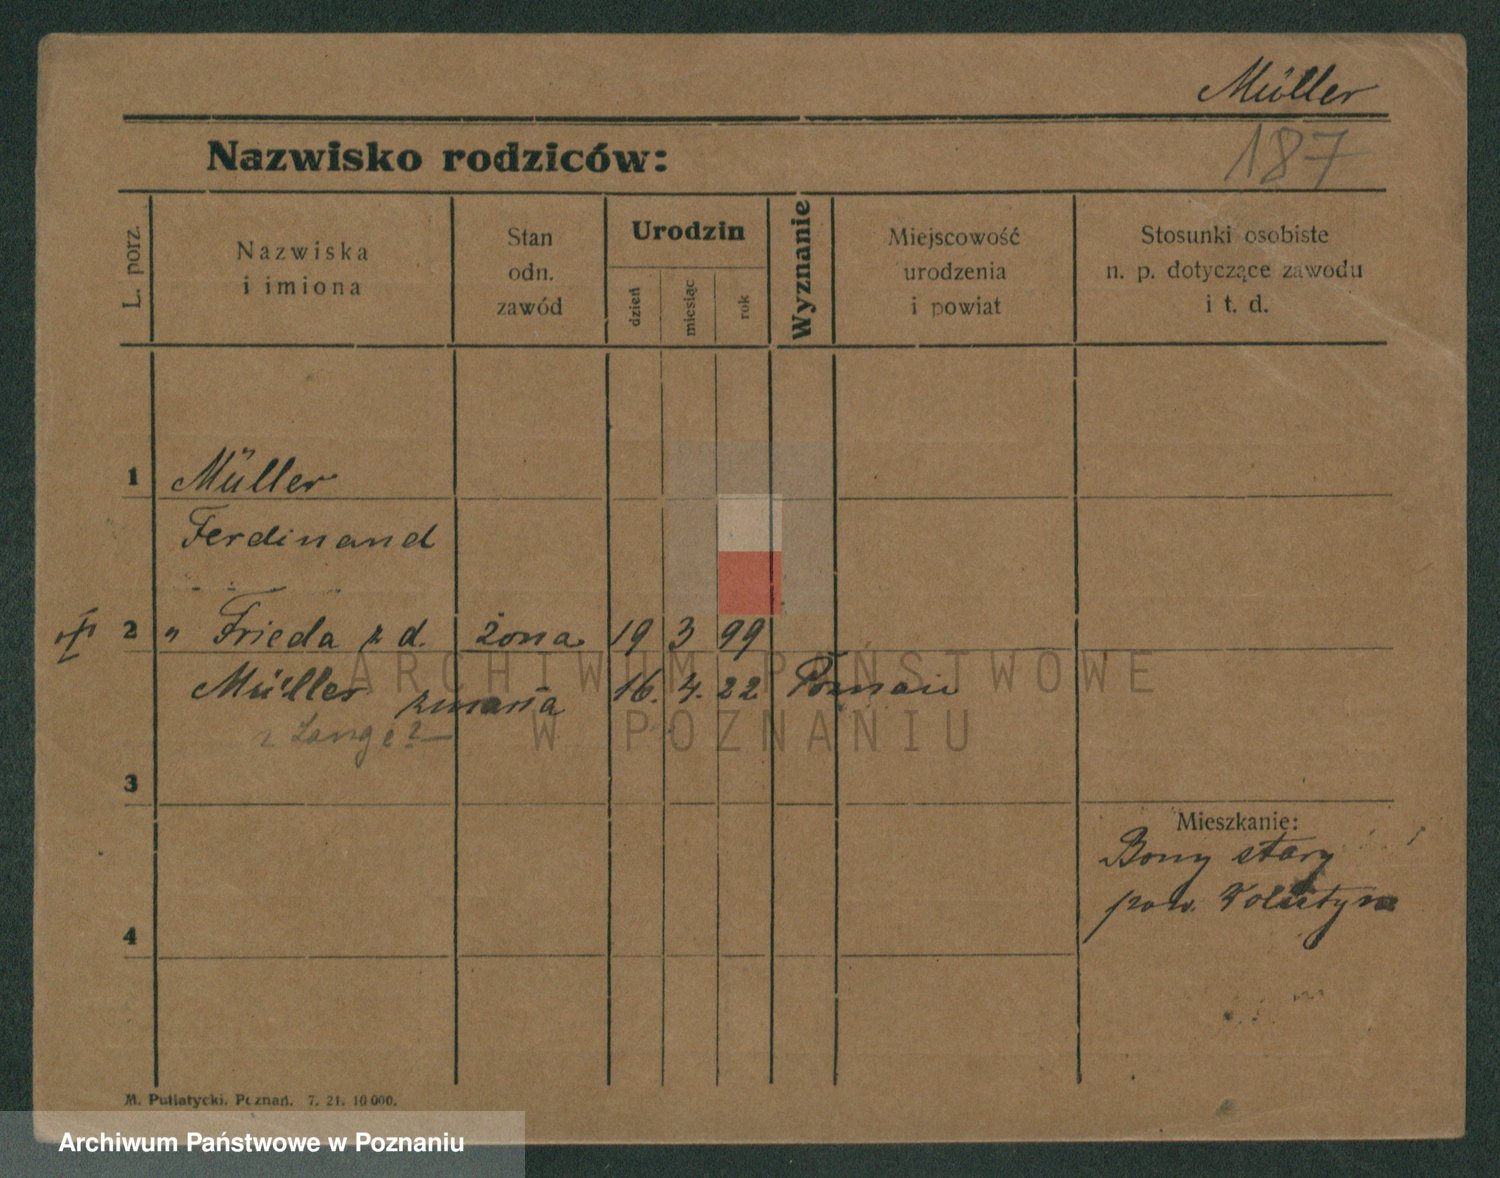 Müller
187
Nazwisko rodziców:
L. porz.
Nazwiska
i imiona
Stan
odn.
zawód
Urodzin
dzień
miesiąc
rok
Wyznanie
Miejscowość
urodzenia
i powiat
Stosunki osobiste
n. p. dotyczące zawodu
i t. d.
1 Müller
Ferdinand
2 " Frieda z d. żona 19 3 99
Müller zmarła 16. 4. 22 Poznań
z Lange?
3
Mieszkanie:
stary
pow.
4
ARCHIWUM PAŃSTWOWE
W POZNANIU
M. Putiatycki, Poznań. 7. 21. 10 000.
Archiwum Państwowe w Poznaniu